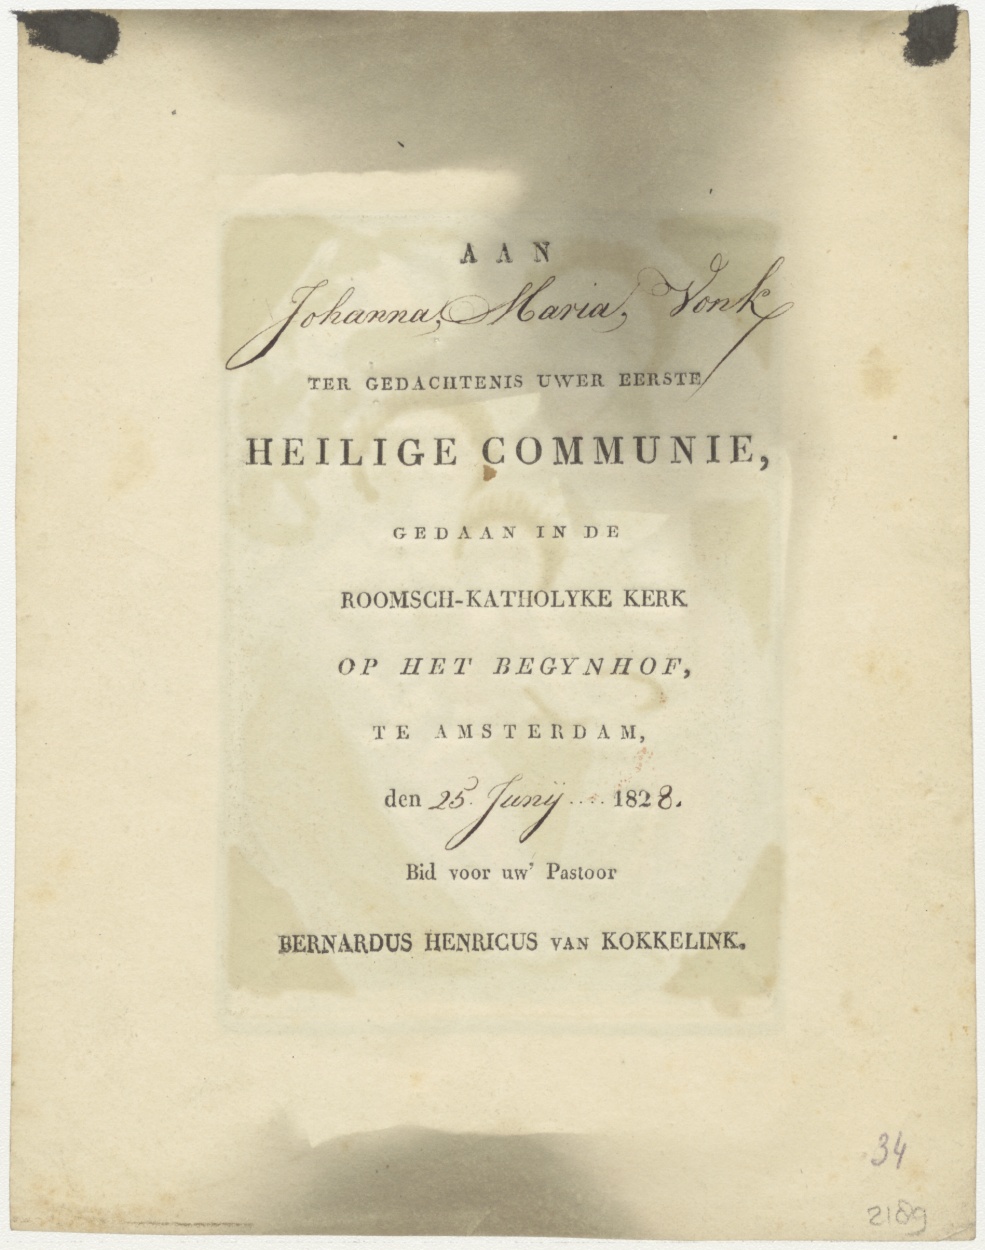 AAN
Johanna, Maria, Vonk
TER GEDACHTENIS UWER EERSTE
HEILIGE COMMUNIE,
GEDAAN IN DE
ROOMSCH-KATHOLYKE KERK
OP HET BEGYNHOF,
TE AMSTERDAM,
den 25. Junÿ .... 1828.
Bid voor uw' Pastoor
BERNARDUS HENRICUS VAN KOKKELINK.
34
2189